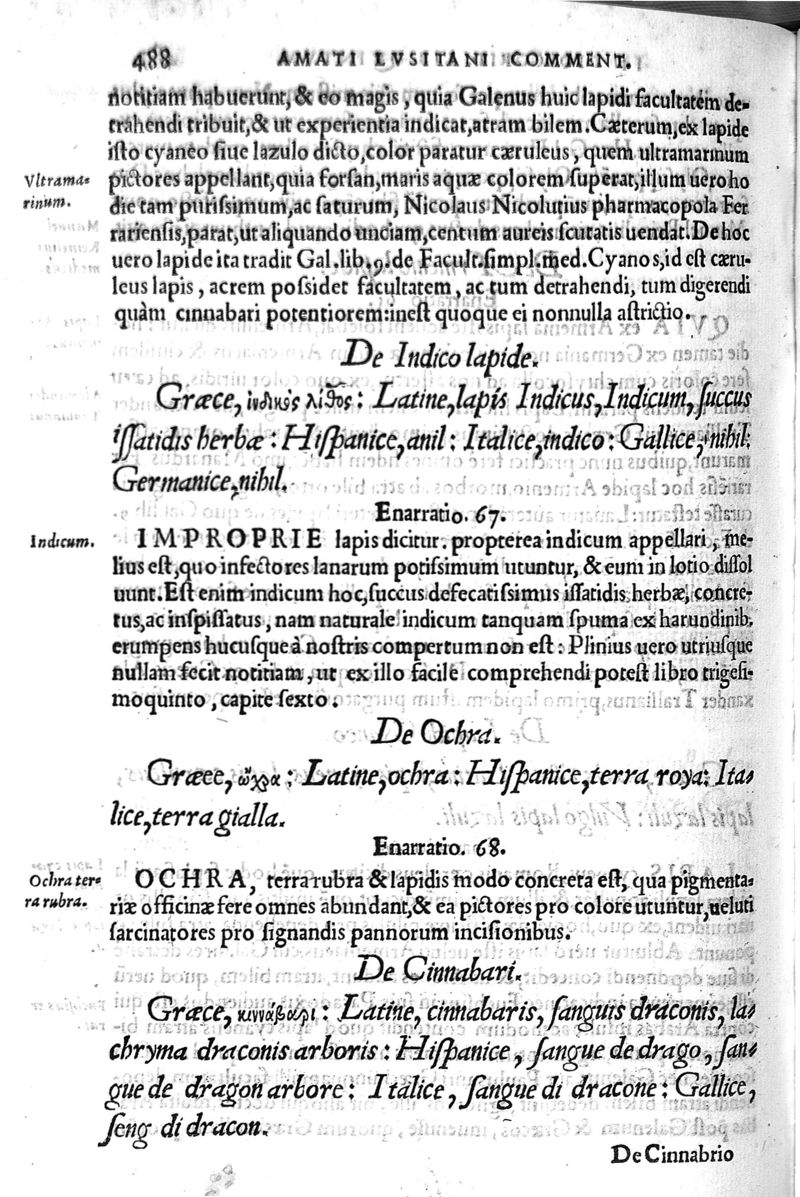 488 AMATI LVSITANI COMMENT.
notitiam habuerunt, & eo magis, quia Galenus huic lapidi facultatem de-
trahendi tribuit, & ut experientia indicat, atram bilem. Cæterum, ex lapide
isto cyaneo siue lazulo dicto, color paratur cæruleus, quem ultramarinum
Vltrama-
rinum.
pictores appellant, quia forsan, maris aquæ colorem superat, illum uero ho
die tam purissimum, ac saturum, Nicolaus Nicolutius pharmacopola Fer
rariensis, parat, ut aliquando unciam, centum aureis scutatis uendat. De hoc
uero lapide ita tradit Gal. lib. 9. de Facult. simpl. med. Cyanos, id est cæru-
leus lapis, acrem possidet facultatem, ac tum detrahendi, tum digerendi
quàm cinnabari potentiorem: inest quoque ei nonnulla astrictio.
De Indico lapide.
Græce, ἰνδικὸς λίθος: Latine, lapis Indicus, Indicum, succus
issatidis herbæ: Hispanice, anil: Italice, indico: Gallice, nihil:
Germanice, nihil.
Enarratio. 67.
Indicum.
IMPROPRIE lapis dicitur. propterea indicum appellari, me-
lius est, quo infectores lanarum potissimum utuntur, & eum in lotio dissol
uunt. Est enim indicum hoc, succus defecatissimus issatidis herbæ, concre-
tus, ac inspissatus, nam naturale indicum tanquam spuma ex harundinib.
erumpens hucusque à nostris compertum non est: Plinius uero utriusque
nullam fecit notitiam, ut ex illo facile comprehendi potest libro trigesi-
moquinto, capite sexto.
De Ochra.
Græce, ὤχρα: Latine, ochra: Hispanice, terra roya: Ita-
lice, terra gialla.
Enarratio. 68.
Ochra ter-
ra rubra.
OCHRA, terra rubra & lapidis modo concreta est, qua pigmenta-
riæ officinæ fere omnes abundant, & ea pictores pro colore utuntur, ueluti
sarcinatores pro signandis pannorum incisionibus.
De Cinnabari.
Græce, κιννάβαρι: Latine, cinnabaris, sanguis draconis, la-
chryma draconis arboris: Hispanice, sangue de drago, san-
gue de dragon arbore: Italice, sangue di dracone: Gallice,
seng di dracon.
De Cinnabrio